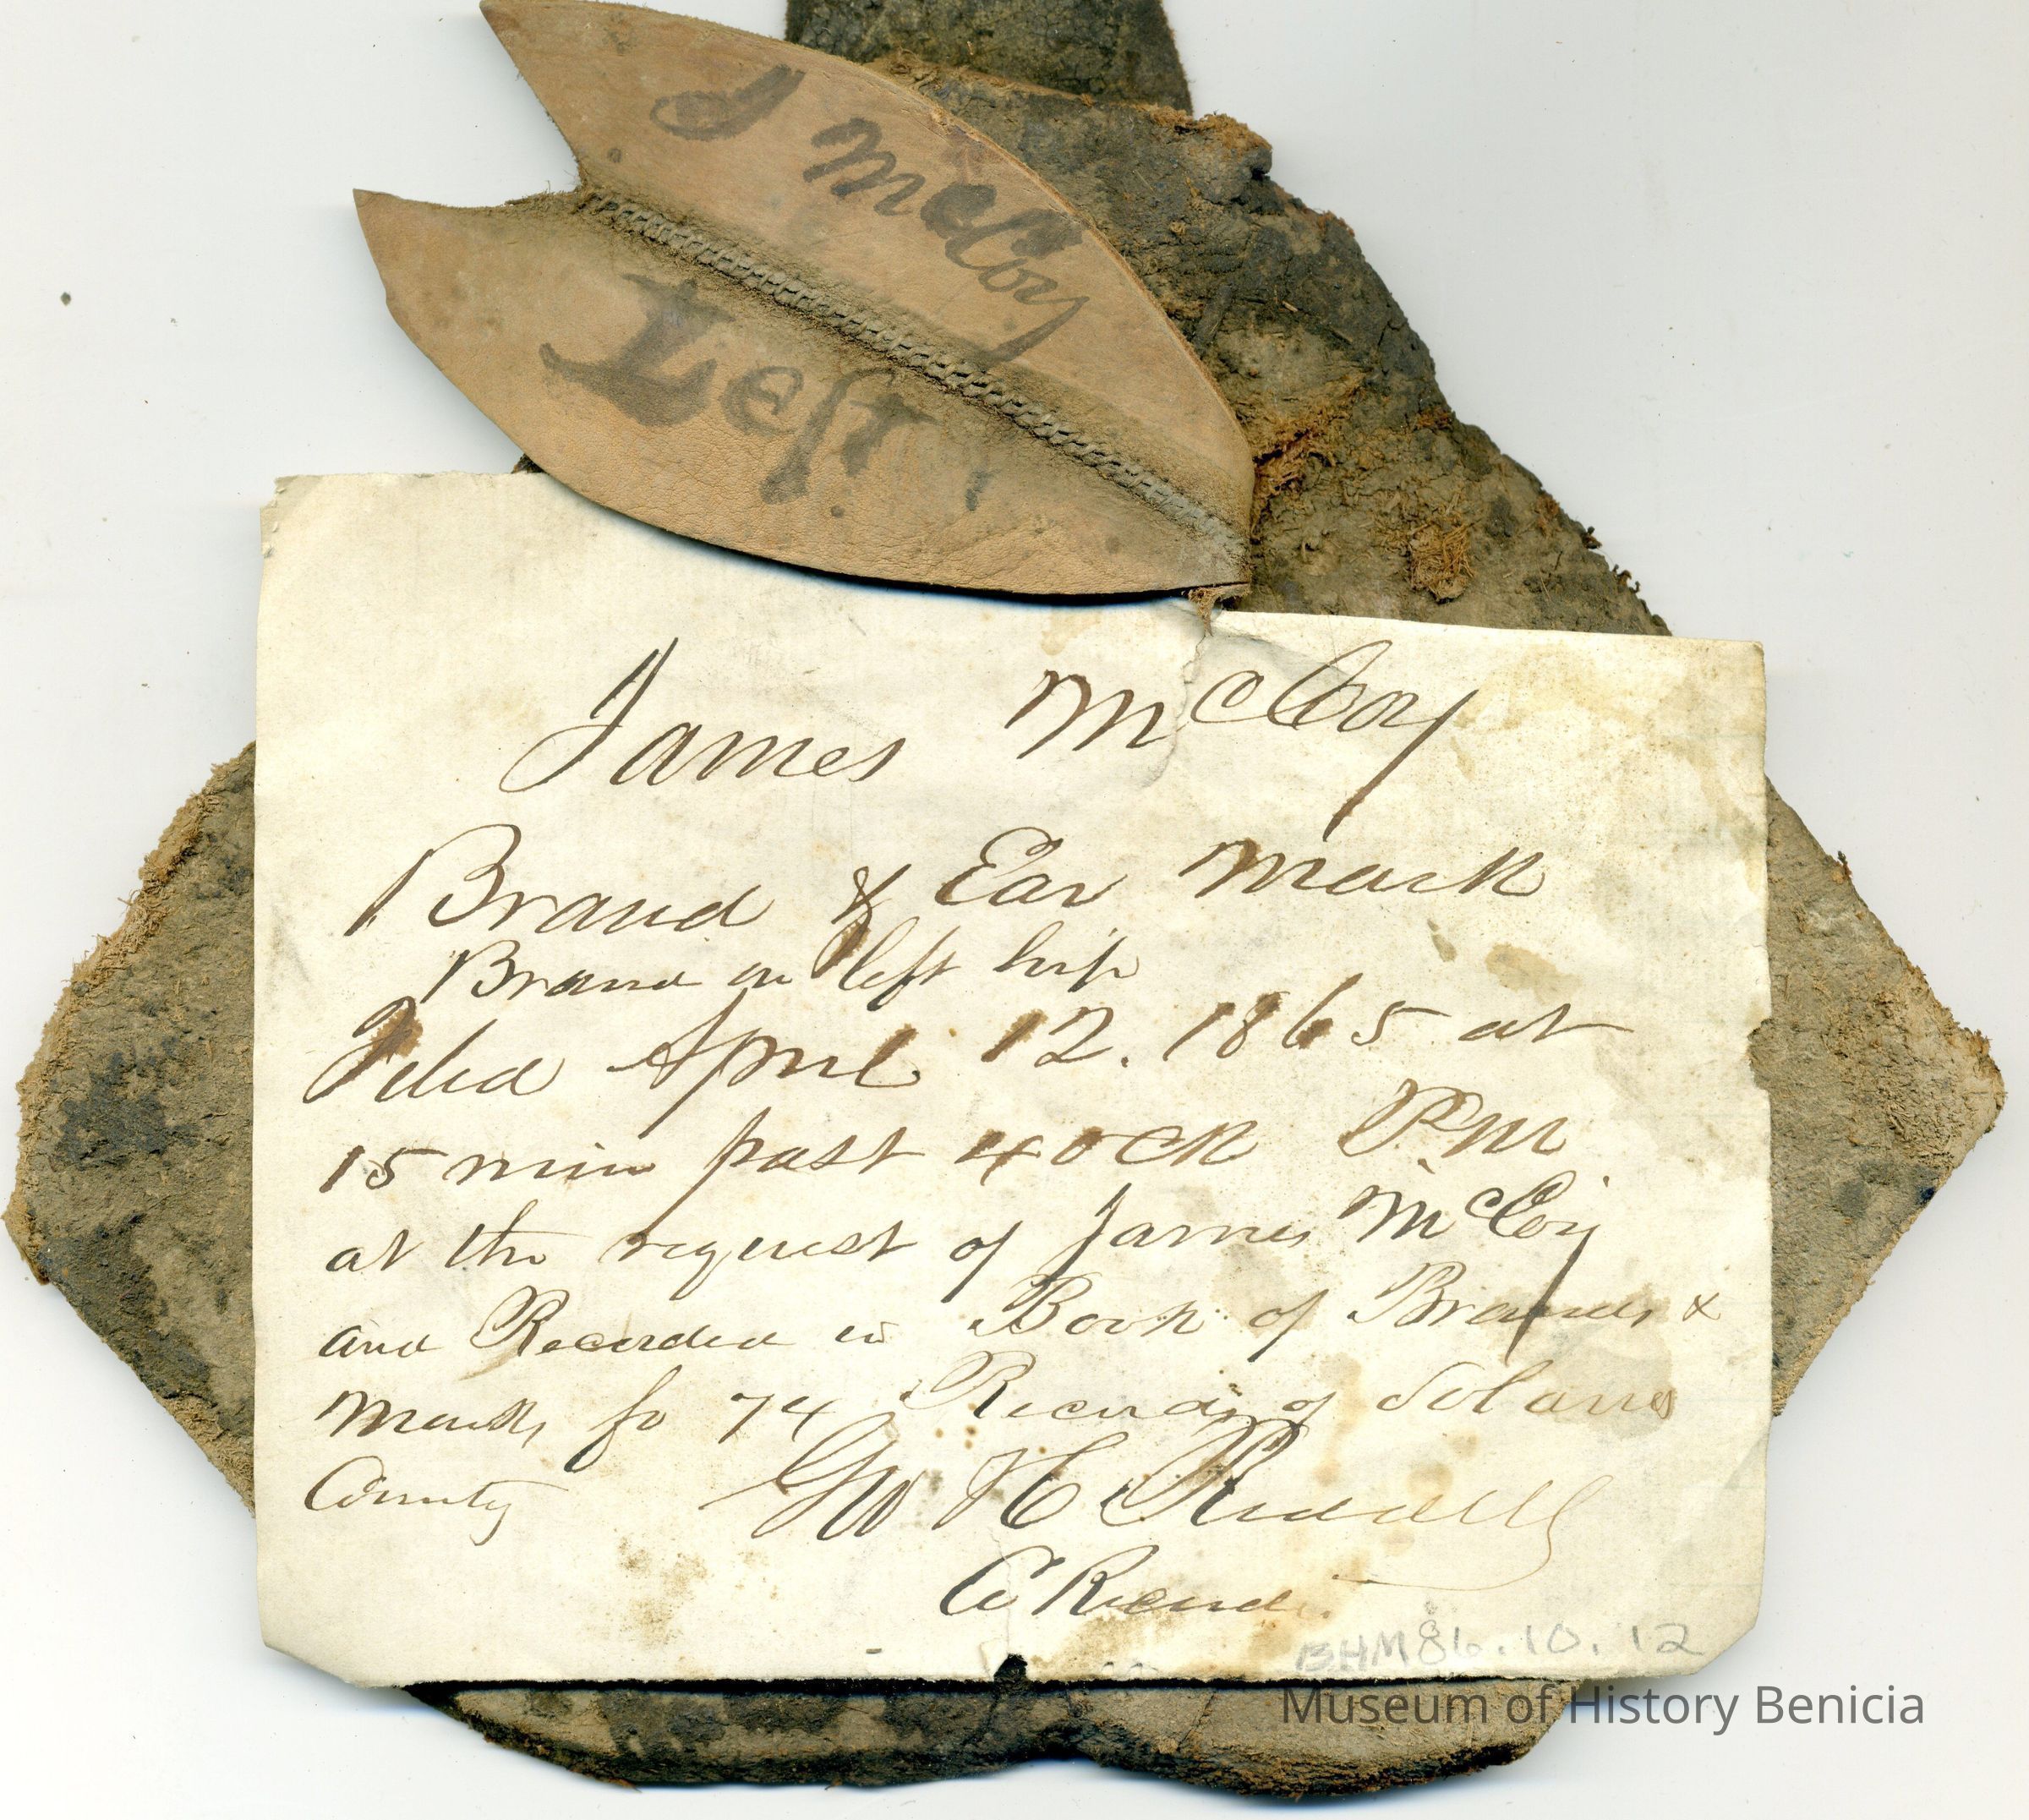 J McCoy
Left
James McCoy
Brand & Ear Mark
Brand on left hip
Filed April 12. 1865 at
15 min past 4 ock P.M
at the request of James McCoy
and Recorded in Book of Brands &
Marks fo 74 Records of Solano
County Geo H Riddell
Co Recorder
BHM86.10.12
Museum of History Benicia